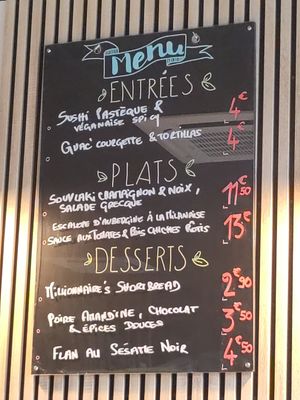 Menu
ENTRÉES
SUSHI PASTÈQUE &
VÉGANAISE SPICY 4€
GUAC' COURGETTE & TORTILLAS 4€
PLATS
SOUVLAKI CHAMPIGNON & NOIX,
SALADE GRECQUE 11€50
ESCALOPE D'AUBERGINE À LA MILANAISE
SAUCE AUX TOMATES & POIS CHICHES RÔTIS 13€
DESSERTS
MILLIONNAIRE'S SHORTBREAD 2€90
POIRE AMANDINE, CHOCOLAT
& ÉPICES DOUCES 3€50
FLAN AU SÉSAME NOIR 4€50